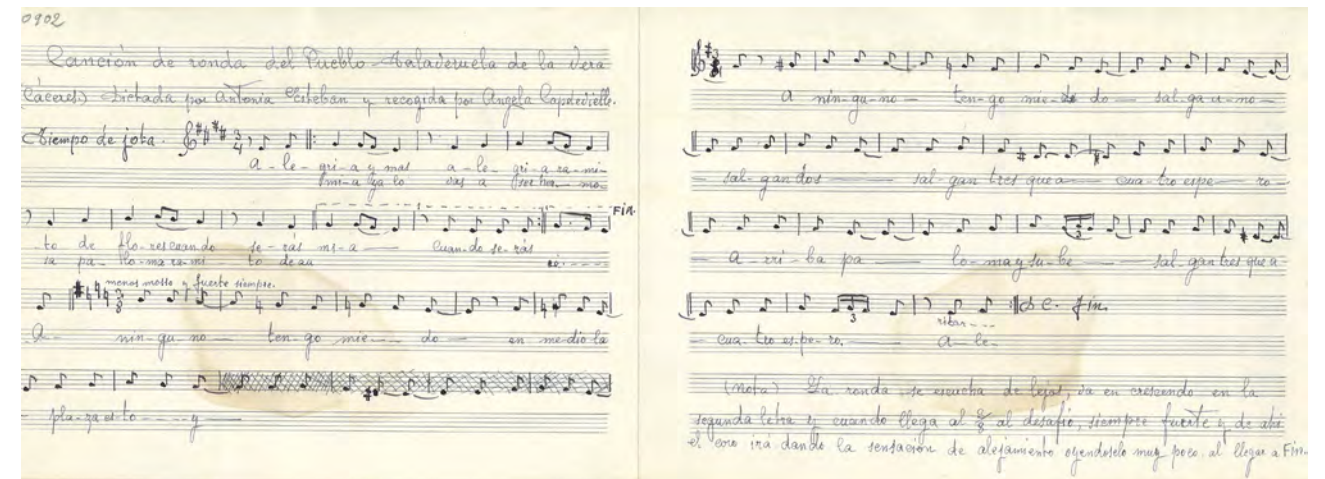 0902
Canción de ronda del Pueblo Taladerruela de la Vera
(Cáceres) Dictada por Antonia Esteban y recogida por Angela Capdevielle.
Tiempo de jota.
A - le - gri - a y mas a - le - gri - a ra - mi -
mo -
- to de flo - res cuan do se - rás mi - a — Cuan - do se - rás
Fin
sa pa - lo - ma ra - mi - to de
menos mosso y fuerte siempre.
A - nin - gu - no — ten - go mie - do — en me - dio la
- pla - za es - to - - - - y —
A nin - gu - no — ten - go mie - do — sal - ga u - no —
- sal - gan dos — sal - gan tres que a — cua - tro espe - ro —
- a - rri - ba pa — lo - ma y su - be — sal - gan tres que a -
- cua - tro es - pe - ro. — D.C. Fin.
A - le -
(Nota) La ronda se escucha de lejos, va en crescendo en la
segunda letra y cuando llega al 3/8 al desafío, siempre fuerte y de ahí
el coro irá dando la sensación de alejamiento oyendoselo muy poco al llegar a Fin.